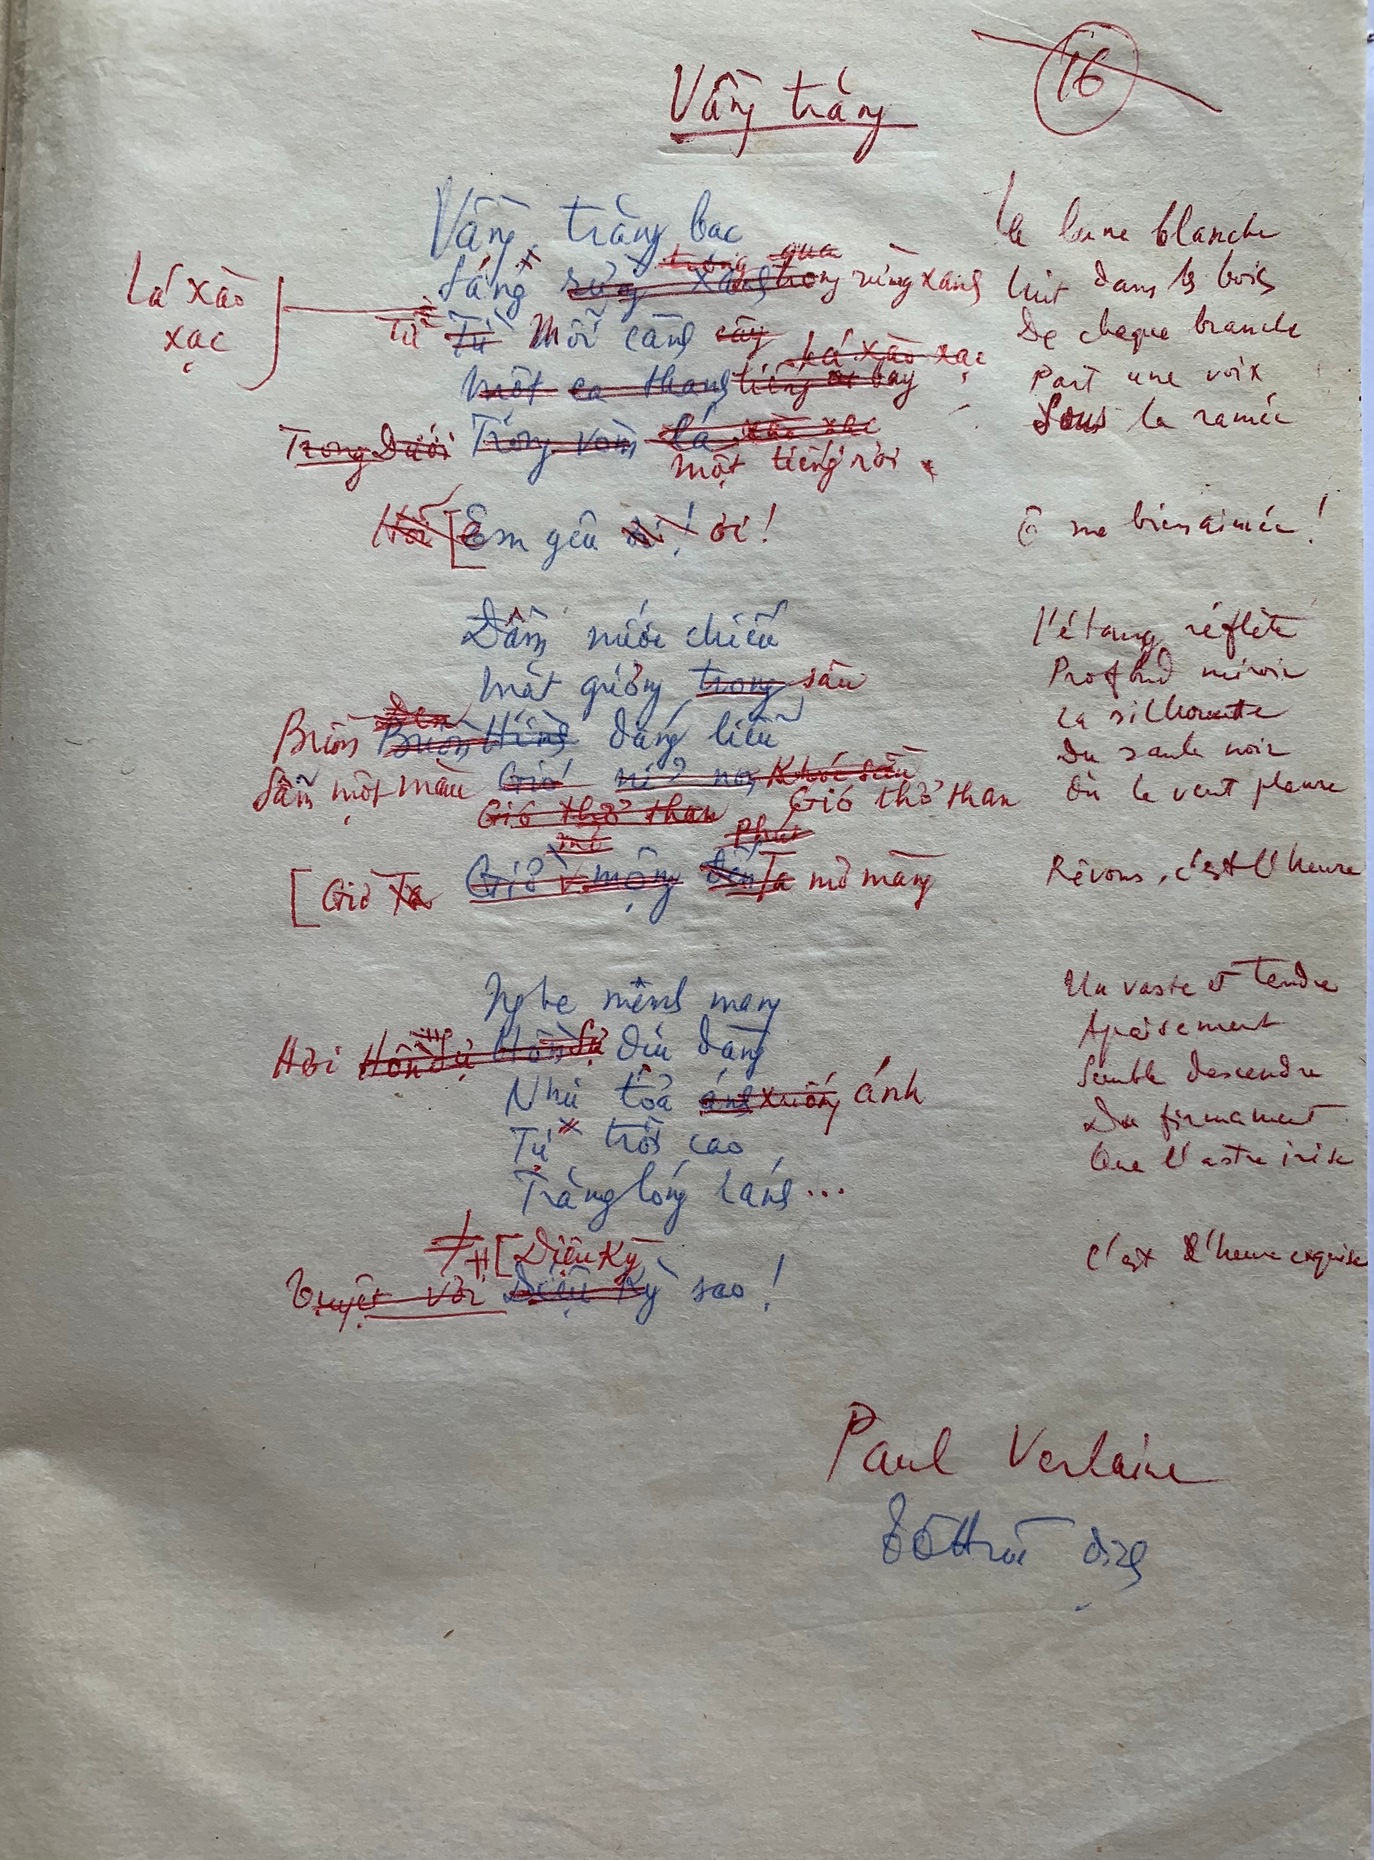 16
Vầng trăng
Vầng trăng bạc
trong qua
Sáng rừng xanh trong rừng xanh
Lá xào
xạc
Từ Từ Mỗi cành cây
lá xào xạc
Một ca thang tiếng bay
Trong Dưới Trong vòm lá xào xạc
một tiếng rơi
Em yêu ơi! ơi!
Đầm nước chiếu
Mặt gương trong sâu
Đen
Buồn Buồn Hình dáng liễu
Sẫm một màu Gió nỉ non Khóc sầu
Gió thở than Gió thở than
mơ Phút
[ Giờ Ta Giờ mộng đến Ta mơ màng
Nghe mênh mang
Hơi Hồn Sự Hồn Sự dịu dàng
Như tỏa ánh xuống ánh
Từ trời cao
Trăng lóng lánh...
[ Diệu Kỳ
Tuyệt vời Diệu Kỳ sao!
La lune blanche
Luit dans les bois
De chaque branche
Part une voix
Sous la ramée
Ô ma bien aimée!
L'étang réflète
Profond miroir
La silhouette
Du saule noir
Où le vent pleure
Rêvons, c'est l'heure
Un vaste et tendre
Apaisement
Semble descendre
Du firmament
Que l'astre irise
C'est l'heure exquise
Paul Verlaine